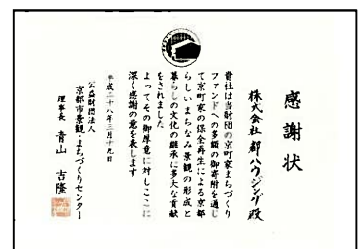 感謝状
株式会社 都ハウジング 殿
貴社は当財団の京町家まちづくり
ファンドへの多額の御寄附を通じ
て京町家の保全再生による京都
らしいまちなみ景観の形成と
暮らしの文化の継承に多大な貢献
をされました
よってその御厚意に対しここに
深く感謝の意を表します
平成二十八年三月十九日
公益財団法人
京都市景観・まちづくりセンター
理事長 青山 吉隆